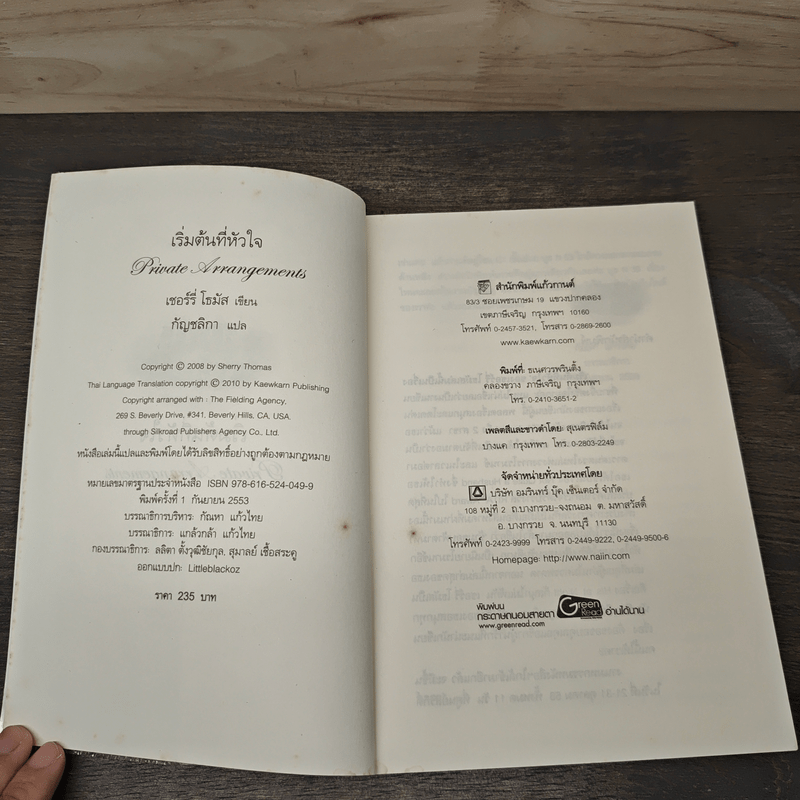 เริ่มต้นที่หัวใจ
Private Arrangements
เชอร์รี่ โธมัส เขียน
กัญชลิกา แปล
Copyright © 2008 by Sherry Thomas
Thai Language Translation copyright © 2010 by Kaewkarn Publishing
Copyright arranged with : The Fielding Agency,
269 S. Beverly Drive, #341. Beverly Hills, CA, USA.
through Silkroad Publishers Agency Co., Ltd.
หนังสือเล่มนี้แปลและพิมพ์โดยได้รับลิขสิทธิ์อย่างถูกต้องตามกฎหมาย
หมายเลขมาตรฐานประจำหนังสือ ISBN 978-616-524-049-9
พิมพ์ครั้งที่ 1 กันยายน 2553
บรรณาธิการบริหาร: กัณหา แก้วไทย
บรรณาธิการ: แกล้วกล้า แก้วไทย
กองบรรณาธิการ: ลลิตา ตั้งวุฒิชัยกุล, สุมาลย์ เชื้อสระคู
ออกแบบปก: Littleblackoz
ราคา 235 บาท
สำนักพิมพ์แก้วกานต์
63/3 ซอยเพชรเกษม 19 แขวงปากคลอง
เขตภาษีเจริญ กรุงเทพฯ 10160
โทรศัพท์ 0-2457-3521, โทรสาร 0-2869-2600
www.kaewkarn.com
พิมพ์ที่: ธเนศวรพรินติ้ง
คลองขวาง ภาษีเจริญ กรุงเทพฯ
โทร. 0-2410-3651-2
เพลตสีและขาวดำโดย: สุเนตรฟิล์ม
บางแค กรุงเทพฯ โทร. 0-2803-2249
จัดจำหน่ายทั่วประเทศโดย
บริษัท อมรินทร์ บุ๊ค เซ็นเตอร์ จำกัด
108 หมู่ที่ 2 ถ.บางกรวย-จงถนอม ต. มหาสวัสดิ์
อ. บางกรวย จ. นนทบุรี 11130
โทรศัพท์ 0-2423-9999 โทรสาร 0-2449-9222, 0-2449-9500-6
Homepage: http://www.naiin.com
พิมพ์บน
กระดาษถนอมสายตา Green Read อ่านได้นาน
www.greenread.com